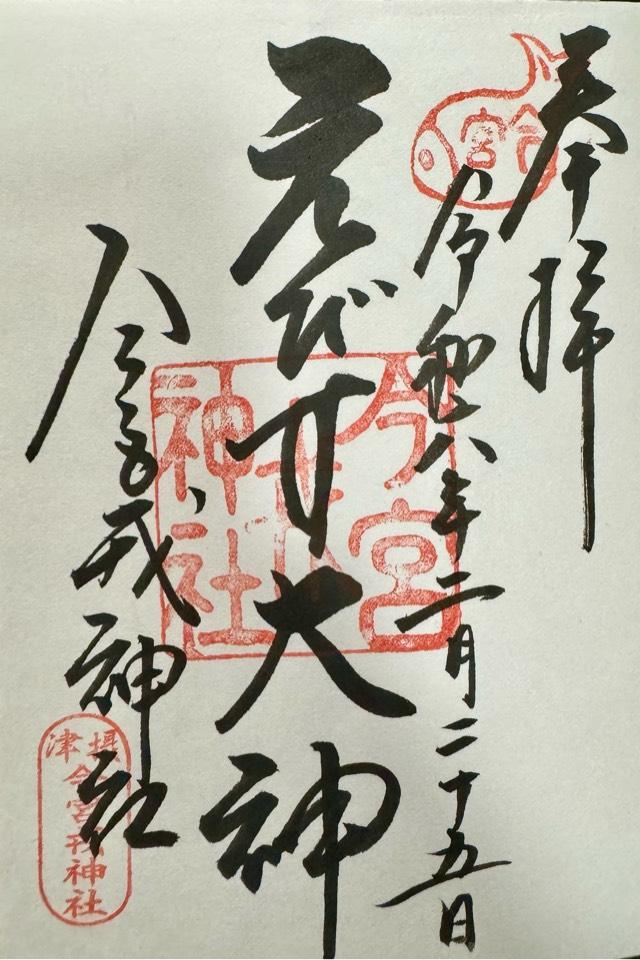 奉拝
令和八年二月二十五日
えびす大神
今宮戎神社
今宮
今宮戎神社
摂津
今宮戎神社